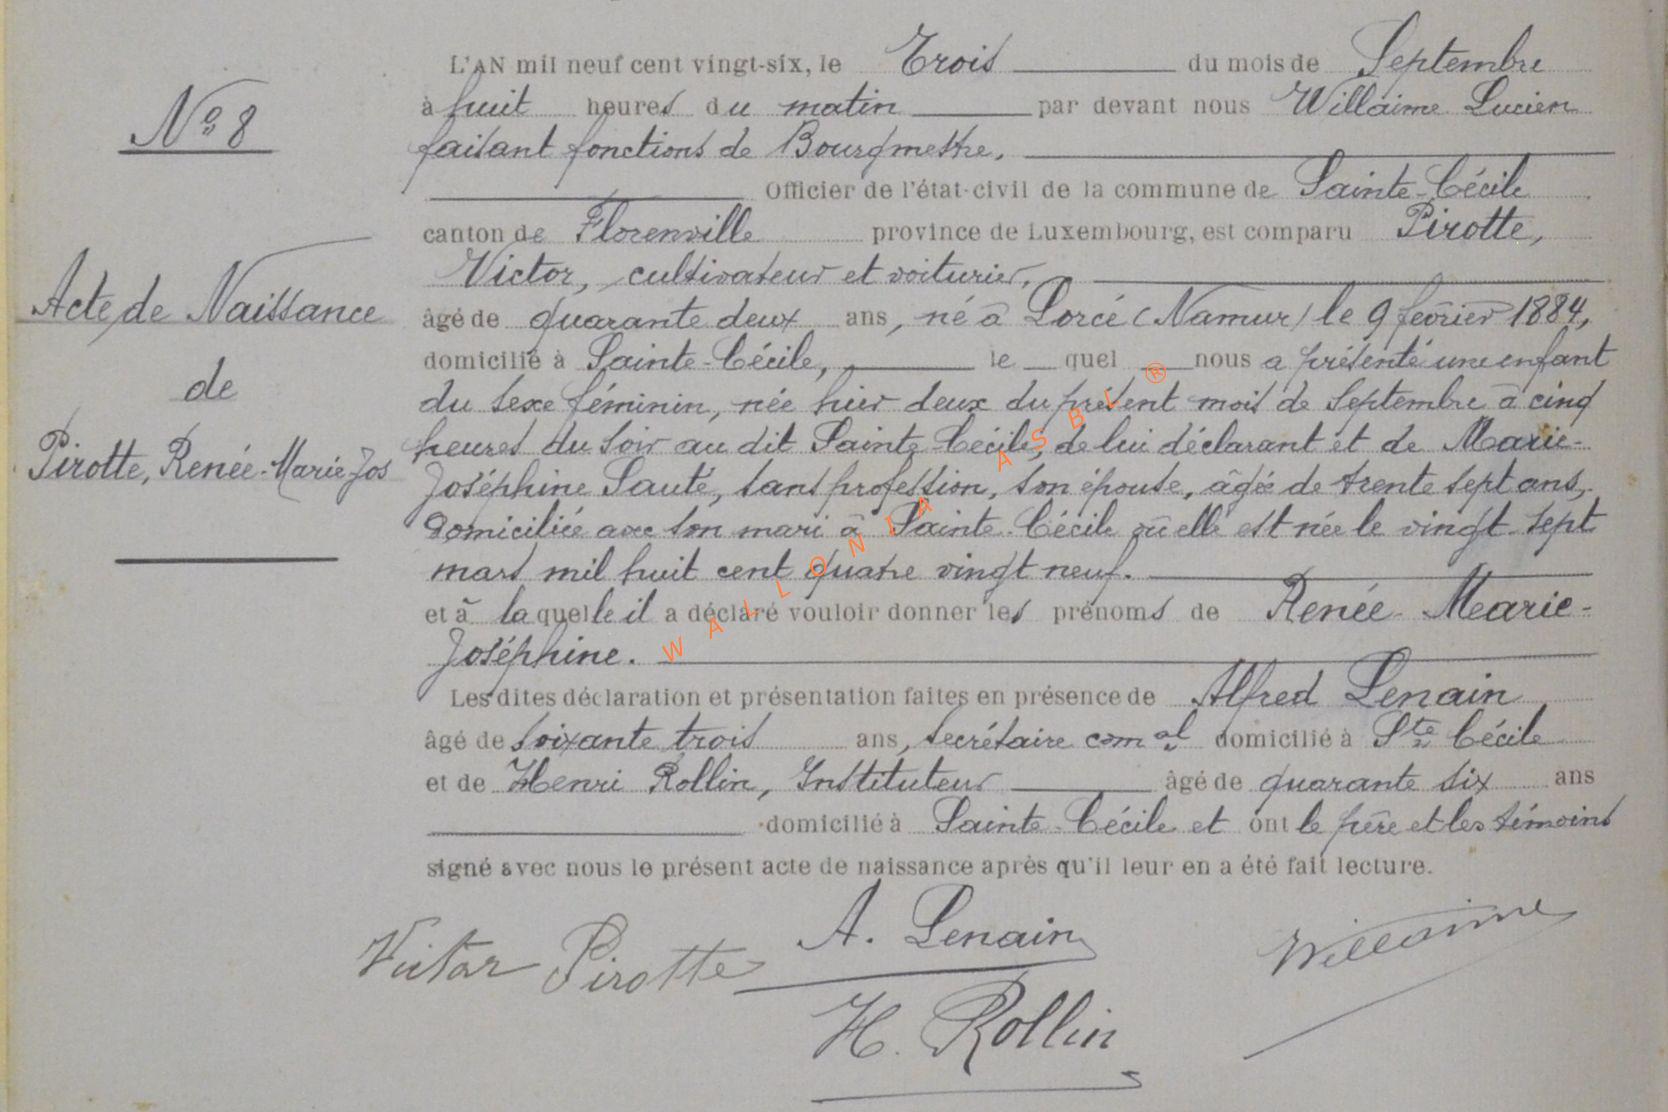 N° 8
Acte de Naissance
de
Pirotte, Renée-Marie-Jos
L'AN mil neuf cent vingt-six, le Trois du mois de Septembre
à huit heures du matin par devant nous Willaime Lucien
faisant fonctions de Bourgmestre.
Officier de l'état-civil de la commune de Sainte-Cécile
canton de Florenville province de Luxembourg, est comparu Pirotte,
Victor, cultivateur et voiturier,
âgé de quarante deux ans, né à Lorcé (Namur) le 9 février 1884,
domicilié à Sainte-Cécile, le quel nous a présenté une enfant
du sexe féminin, née hier deux du présent mois de Septembre à cinq
heures du soir au dit Sainte-Cécile, de lui déclarant et de Marie-
Joséphine Sauté, sans profession, son épouse, âgée de trente sept ans,
domiciliée avec son mari à Sainte-Cécile où elle est née le vingt-sept
mars mil huit cent quatre vingt neuf.
et à laquelle il a déclaré vouloir donner les prénoms de Renée-Marie-
Joséphine.
Les dites déclaration et présentation faites en présence de Alfred Lenain
âgé de soixante trois ans, secrétaire comal domicilié à Ste Cécile
et de Henri Rollin, Instituteur âgé de quarante six ans
domicilié à Sainte-Cécile et ont le père et les témoins
signé avec nous le présent acte de naissance après qu'il leur en a été fait lecture.
Victor Pirotte A. Lenain Willaime
H. Rollin
WALLONIA ASBL ®